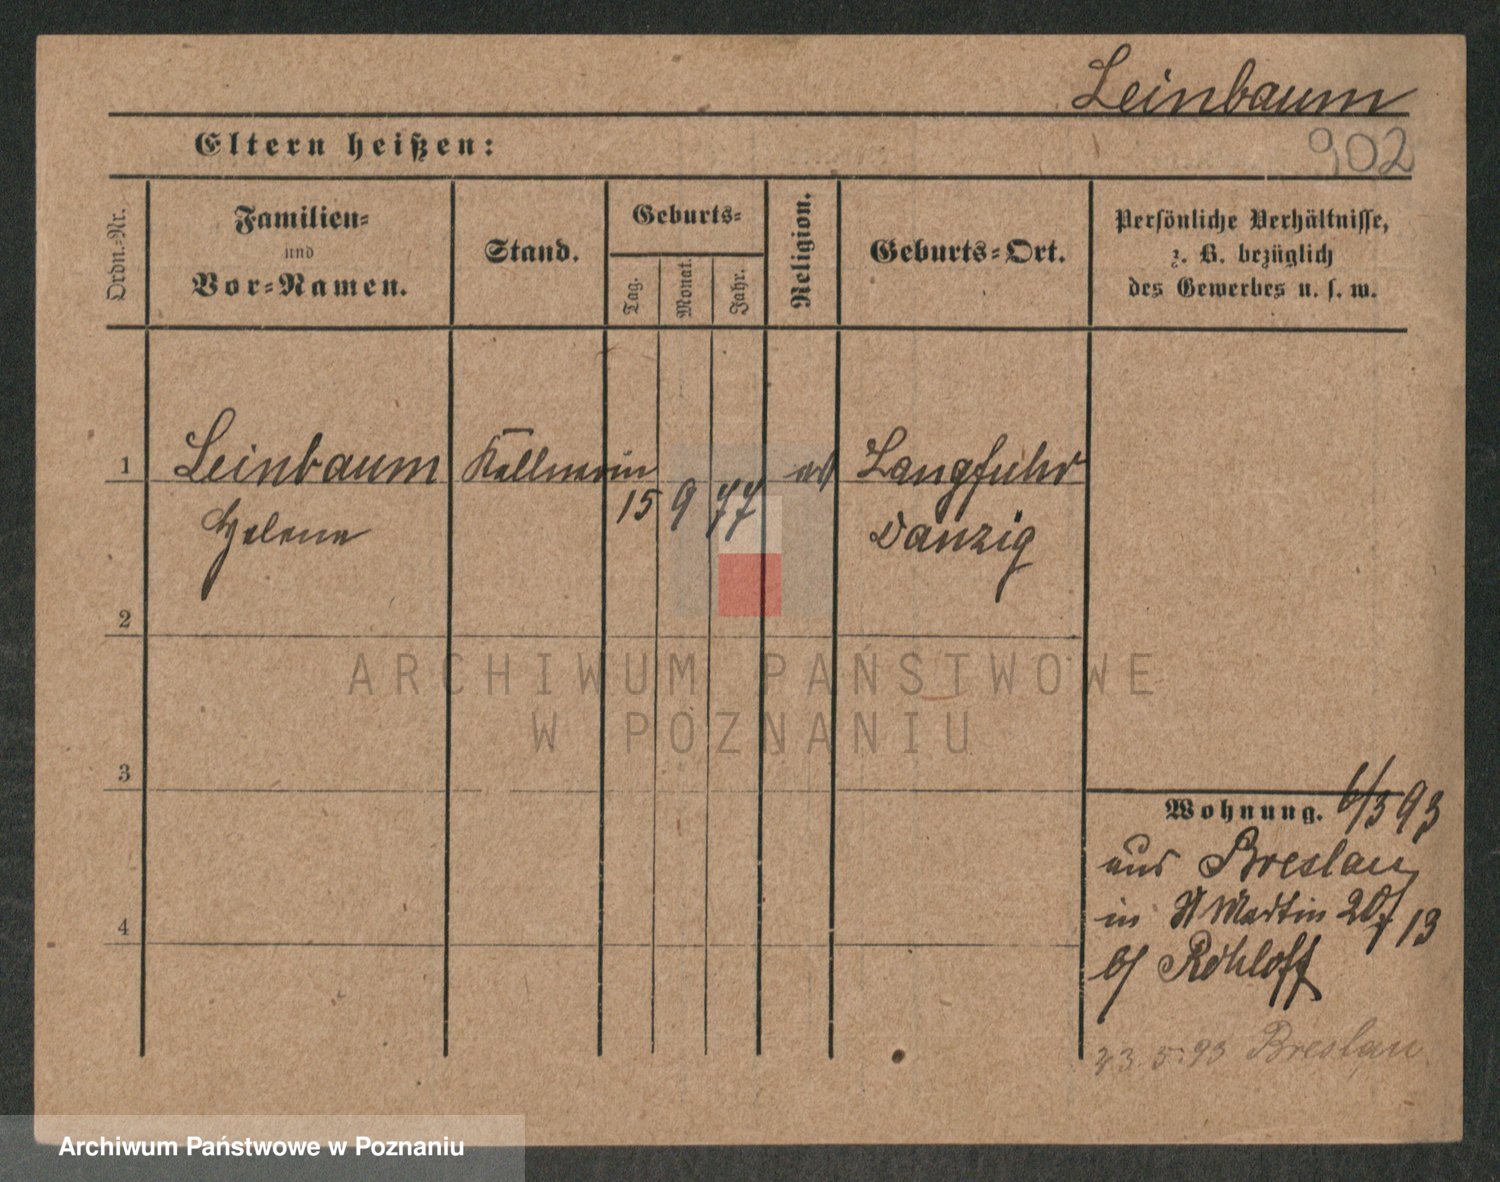 Leinbaum
Eltern heißen:
902
Ordn.-Nr.
Familien-
und
Vor-Namen.
Stand.
Geburts-
Tag.
Monat.
Jahr.
Religion.
Geburts-Ort.
Persönliche Verhältnisse,
z. B. bezüglich
des Gewerbes u. s. w.
1 Leinbaum Kellnerin Langfuhr
15 9 77
Helene Danzig
2
ARCHIWUM PAŃSTWOWE
W POZNANIU
3
Wohnung. 6/3 93
aus Breslau
in St Martin 20 13
b/ Rohloff
4
23.5.93 Breslau
Archiwum Państwowe w Poznaniu